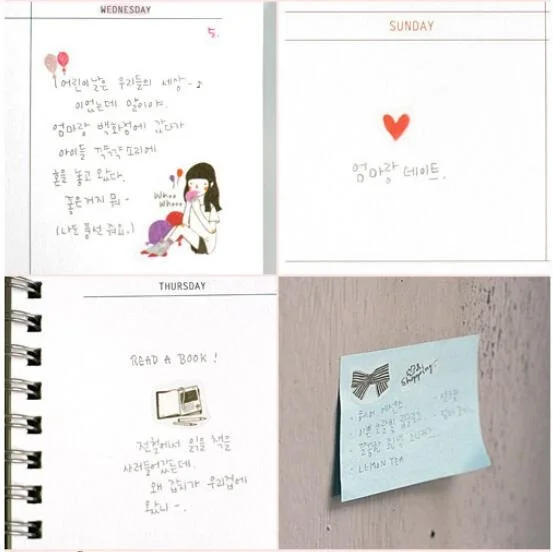 WEDNESDAY
5.
어린이날은 우리들의 세상~♪
이었는데 말이야.
엄마랑 백화점에 갔다가
아이들 꺅꺅꺅 소리에
혼을 놓고 왔다.
좋은거지 뭐 -
(나도 풍선 줘요.)
Whoo
Whooo
SUNDAY
엄마랑 데이트.
THURSDAY
READ A BOOK!
전철에서 읽을 책을
사러들어갔는데.
왜 잡지가 우리집에
왔니 -.
shopping!
· LEMON TEA